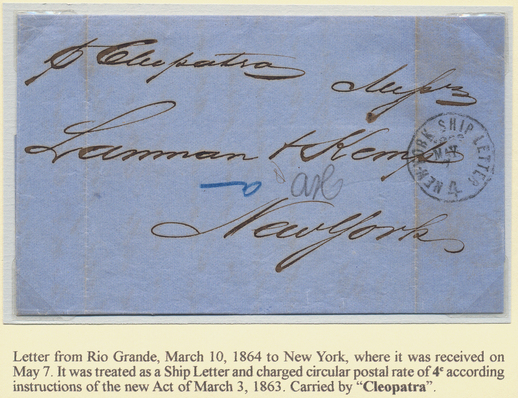 p Cleopatra
Messrs
Lanman & Kemp
New York
NEW-YORK SHIP LETTER
MAY
7
4
Letter from Rio Grande, March 10, 1864 to New York, where it was received on
May 7. It was treated as a Ship Letter and charged circular postal rate of 4c according
instructions of the new Act of March 3, 1863. Carried by “Cleopatra”.